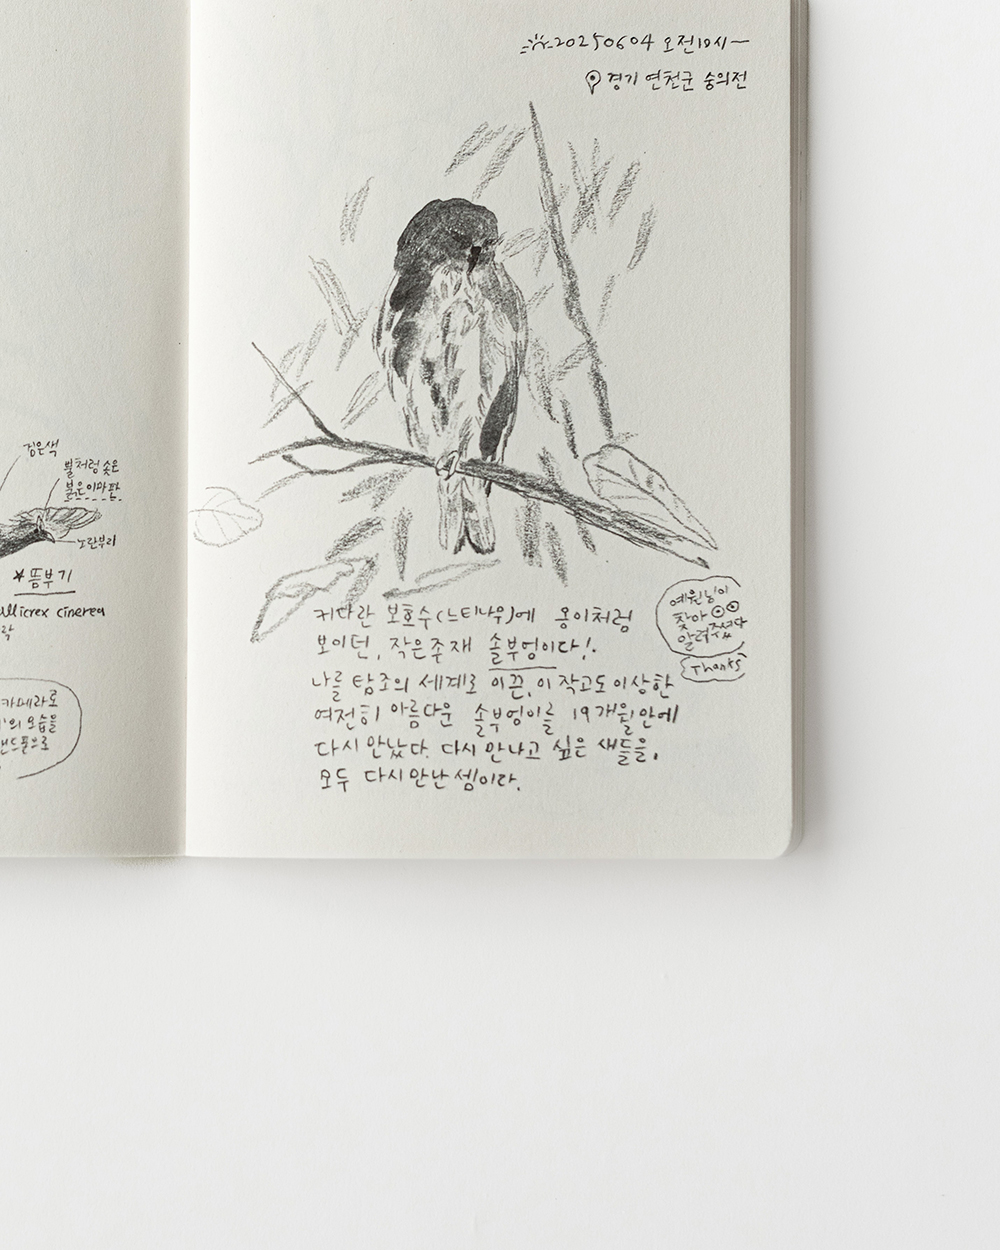 검은색
뿔처럼 솟은
붉은이마판
노란부리
*뜸부기
llicrex cinerea
락
카메라로
'의 모습을
핸드폰으로
20250604 오전10시~
경기 연천군 숭의전
커다란 보호수(느티나무)에 옹이처럼
보이던, 작은 존재 솔부엉이다!
나를 탐조의 세계로 이끈, 이 작고도 이상한
여전히 아름다운 솔부엉이를 19개월만에
다시 만났다. 다시 만나고 싶은 새들을,
모두 다시 만난 셈이다.
예원님이
찾아
알려주셨다
Thanks